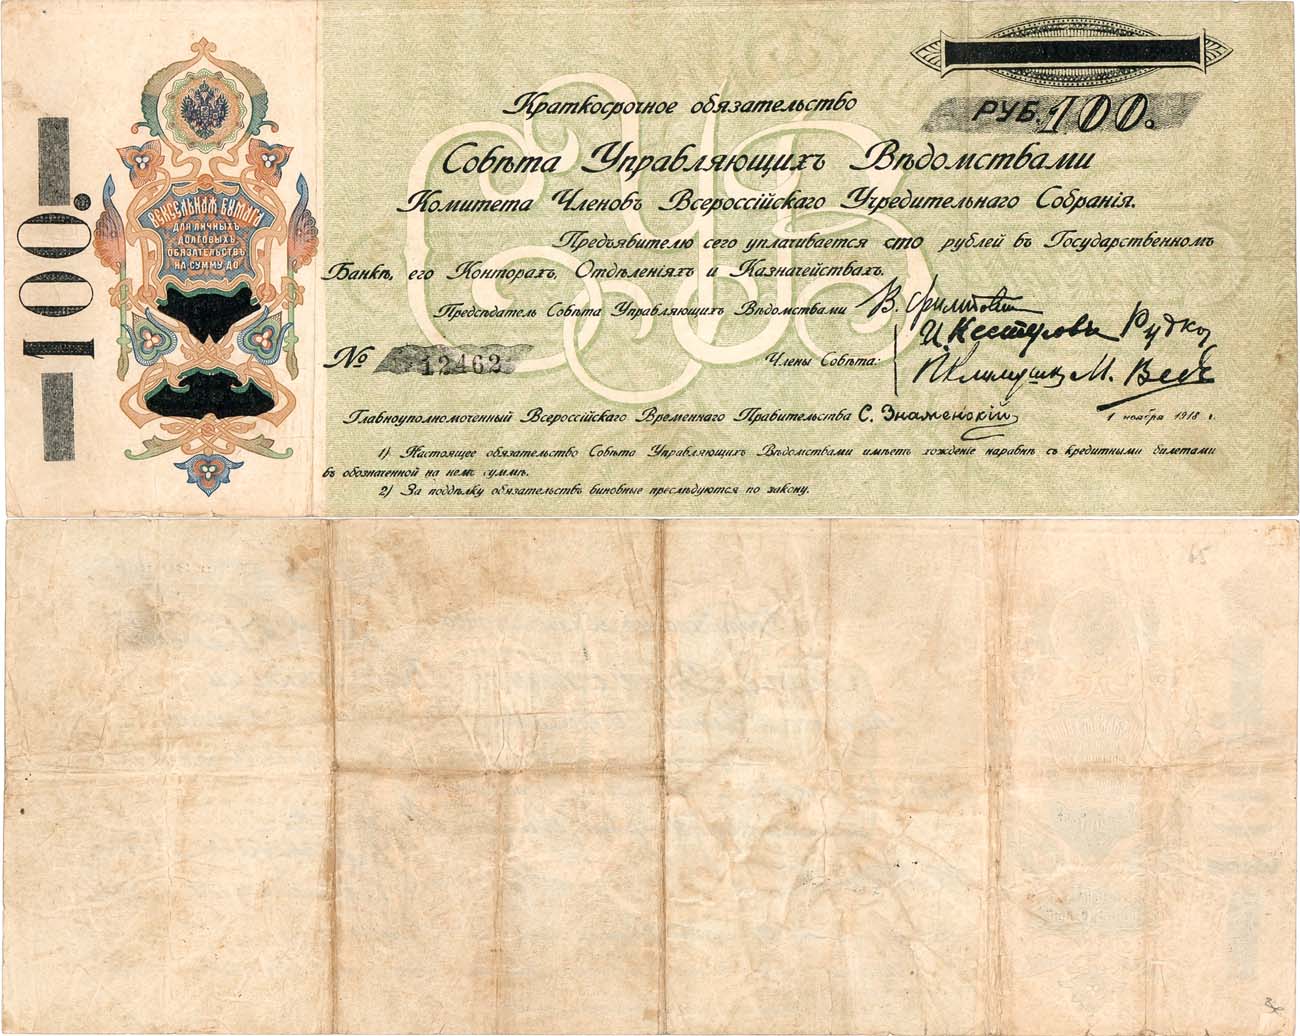 — 100. —
ВЕКСЕЛЬНАЯ БУМАГА
ДЛЯ ЛИЧНЫХЪ
ДОЛГОВЫХЪ
ОБЯЗАТЕЛЬСТВЪ
НА СУММУ ДО
РУБ. 100.
Краткосрочное обязательство
Совѣта Управляющихъ Вѣдомствами
Комитета Членовъ Всероссійскаго Учредительнаго Собранія.
Предъявителю сего уплачивается сто рублей въ Государственномъ
Банкѣ, его Конторахъ, Отдѣленіяхъ и Казначействахъ.
Предсѣдатель Совѣта Управляющихъ Вѣдомствами В.
№ 12462
Члены Совѣта:
М. Веде
Главноуполномоченный Всероссійскаго Временнаго Правительства С. Знаменскій
1 ноября 1918 г.
1) Настоящее обязательство Совѣта Управляющихъ Вѣдомствами имѣетъ хожденіе наравнѣ съ кредитными билетами
въ обозначенной на немъ суммѣ.
2) За поддѣлку обязательствъ виновные преслѣдуются по закону.